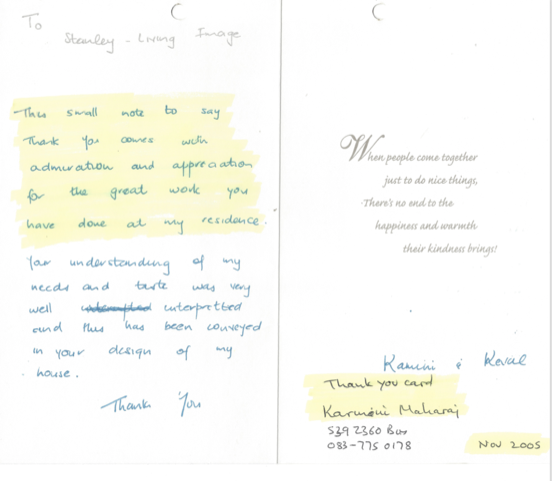 To
Stanley - Living Image
This small note to say
Thank you comes with
admiration and appreciation
for the great work you
have done at my residence.
Your understanding of my
needs and taste was very
well interpretted
and this has been conveyed
in your design of my
house.
Thank You
When people come together
just to do nice things,
There's no end to the
happiness and warmth
their kindness brings!
Kamini & Keval
Thank you card
Kamini Maharaj
539 2360 Bus
083-775 0178
Nov 2005